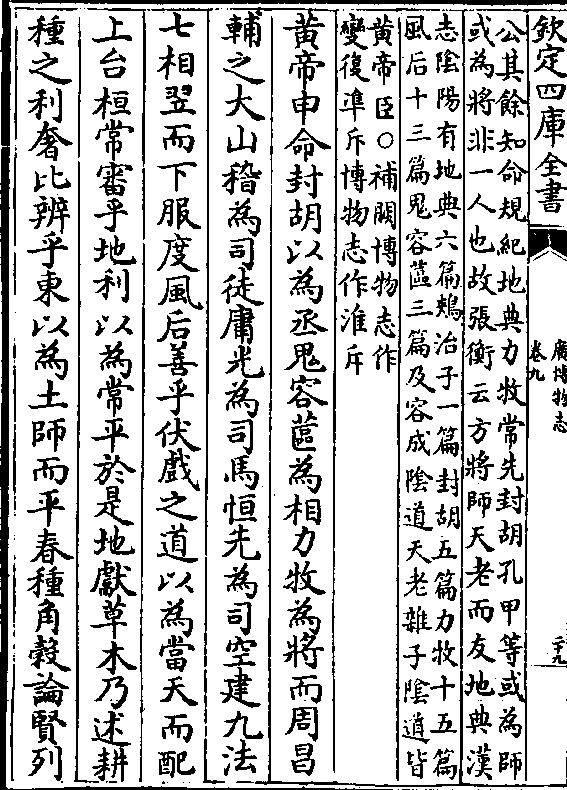 欽定四庫全書
廣博物志
卷九
二十九
公其餘知命規紀地典力牧常先封胡孔甲等或為師
或為將非一人也故張衡云方將師天老而友地典漢
志陰陽有地典六篇鵊冶子一篇封胡五篇力牧十五篇
風后十三篇鬼容蓲三篇及容成陰道天老雜子陰道皆
黃帝臣○補闕博物志作
變復凖斥博物志作淮斥
黃帝申命封胡以為丞鬼容蓲為相力牧為將而周昌
輔之大山稽為司徒庸光為司馬恒先為司空建九法
七相翌而下服度風后善乎伏戲之道以為當天而配
上台桓常審乎地利以為常平於是地獻草木乃述耕
種之利奢比辨乎東以為土師而平春種角榖論賢列